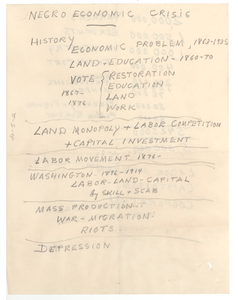 NEGRO ECONOMIC CRISIS
HISTORY
ECONOMIC PROBLEM, 1863-1935
LAND - EDUCATION - 1860-70
VOTE { RESTORATION
1867- EDUCATION
1876 LAND
WORK
LAND MONOPOLY + LABOR COMPETITION
+ CAPITAL INVESTMENT
LABOR MOVEMENT 1870-
WASHINGTON - 1896-1914
LABOR-LAND-CAPITAL
by SKILL + SCAB
MASS PRODUCTION -
WAR - MIGRATION -
RIOTS
DEPRESSION